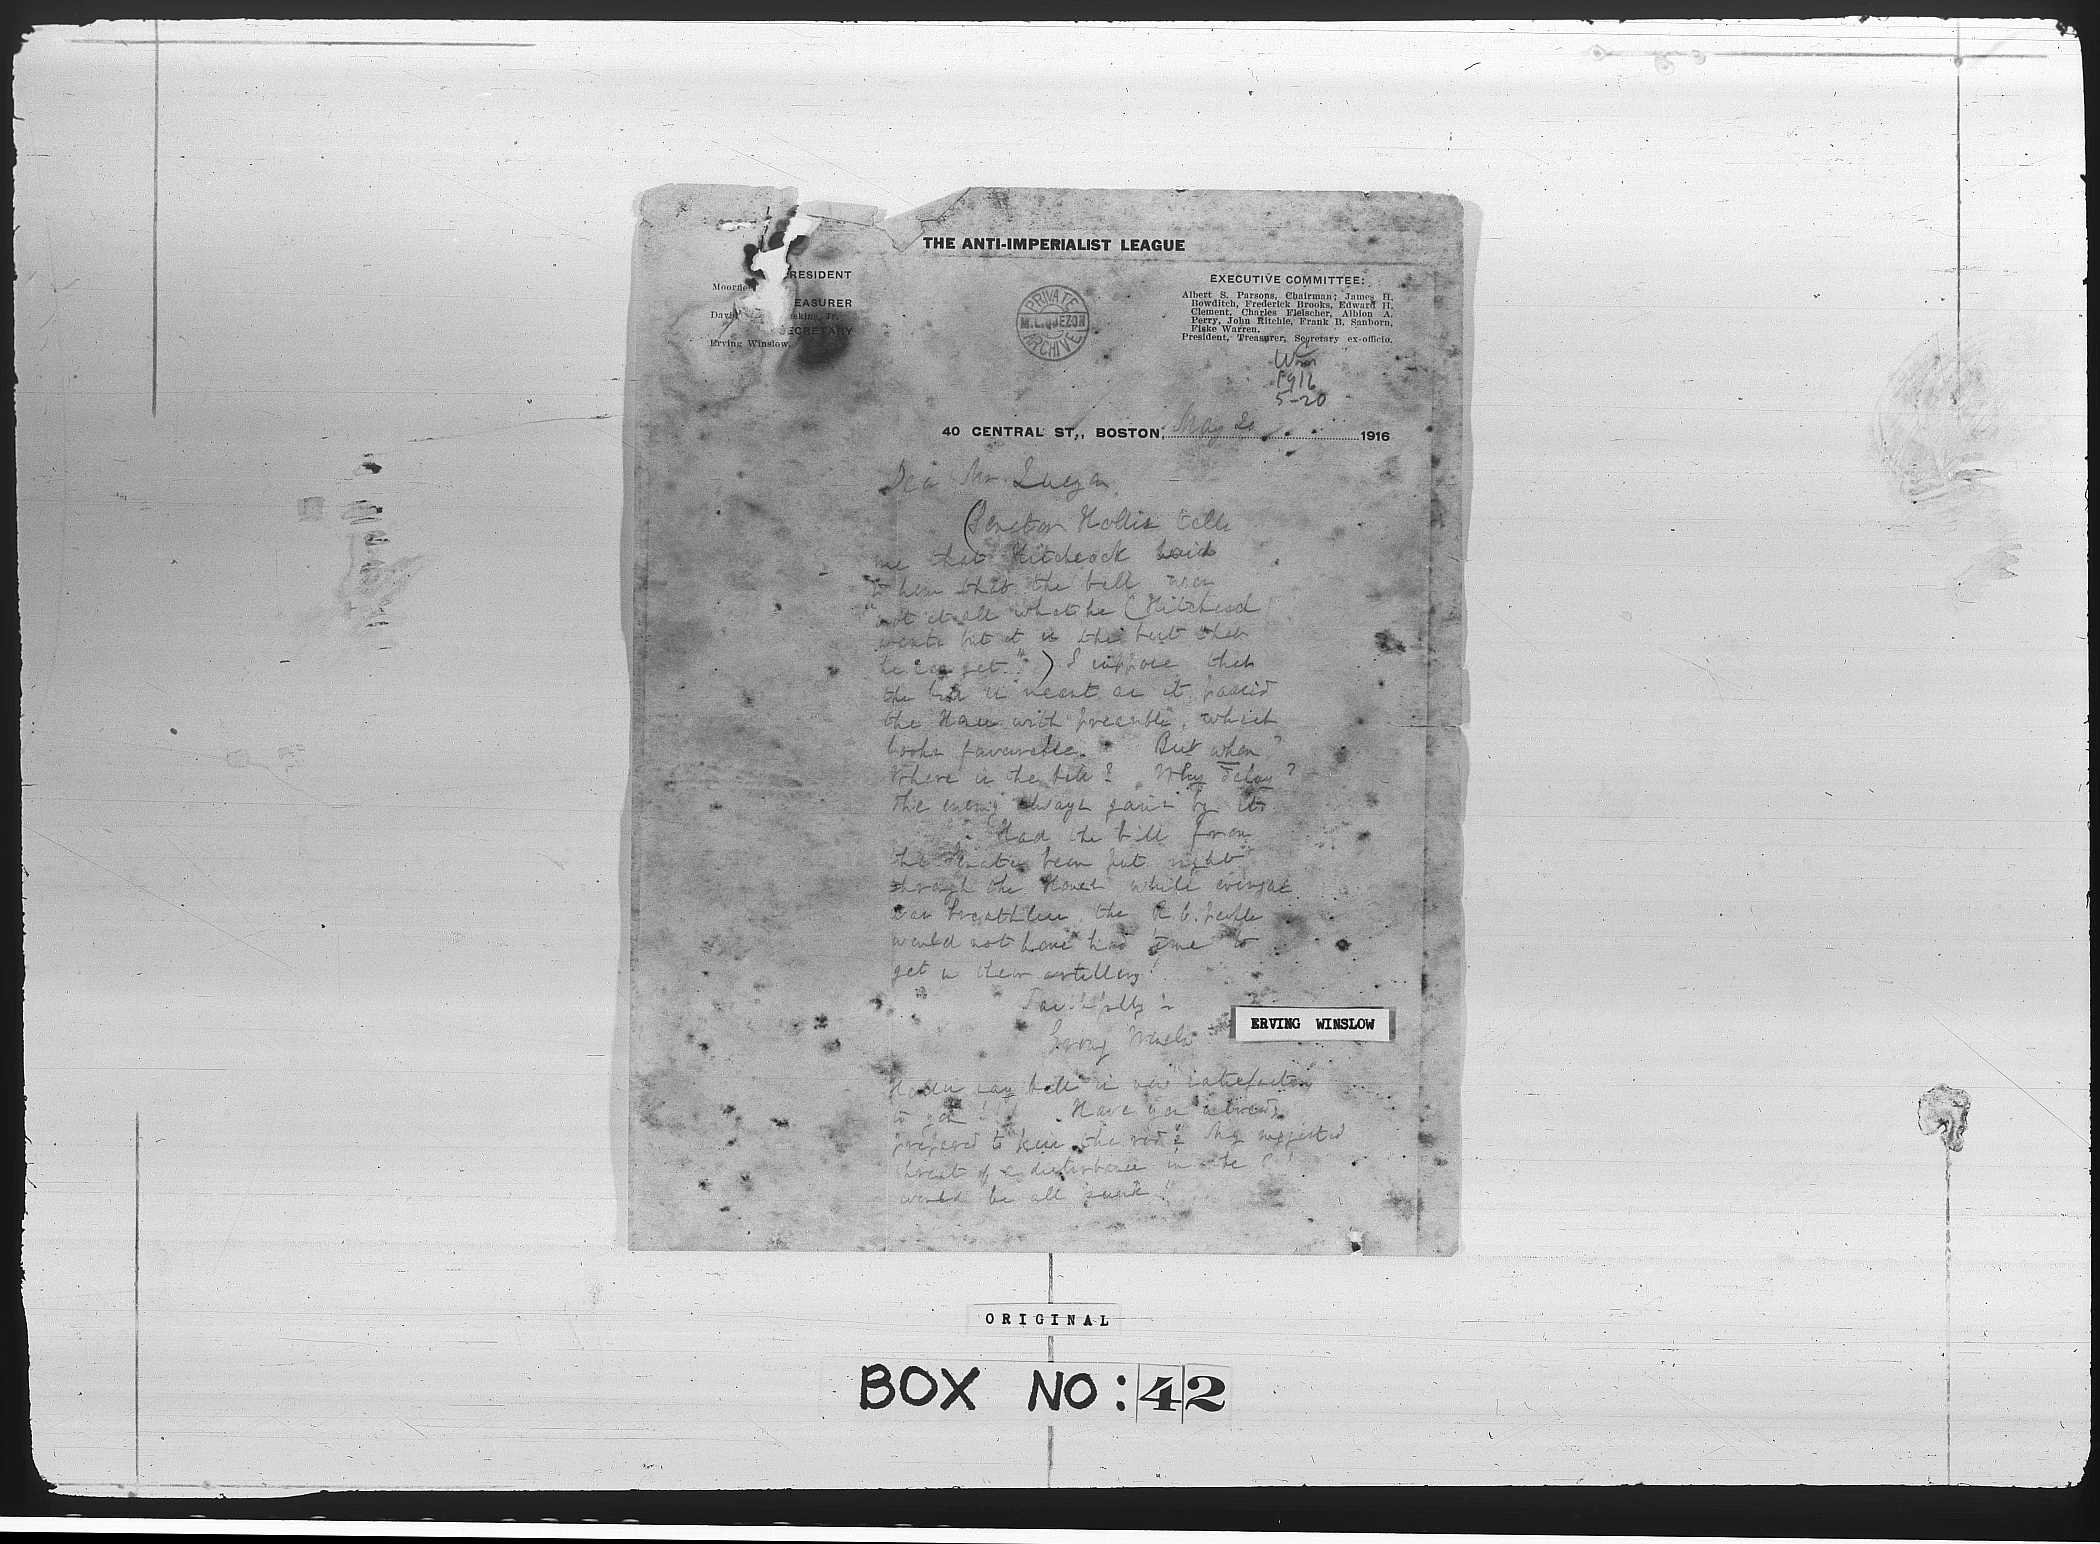 THE ANTI-IMPERIALIST LEAGUE
RESIDENT
Moorfie
EASURER
David skins, Jr.
SECRETARY
Erving Winslow.
PRIVATE
M.L.QUEZON
ARCHIVE
EXECUTIVE COMMITTEE:
Albert S. Parsons, Chairman; James H.
Bowditch, Frederick Brooks, Edward H.
Clement, Charles Fleischer, Albion A.
Perry, John Ritchie, Frank B. Sanborn,
Fiske Warren.
President, Treasurer, Secretary ex-officio.
1916
5-20
40 CENTRAL ST., BOSTON, May 20 1916
Dear Mr. Quezon
(Senator Hollis tells
me that Hitchcock said
to him that the bill was
"not at all what he (Hitchcock
wants but it is the best that
he can get.") I suppose that
the bill is meant as it passed
the House with preamble, which
looks favorable. But when?
Where is the bill? Why delay?
The enemy always gains by it.
Had the bill from
the Senate been put right
through the House while everyone
was breathless, the R.C. people
would not have had time to
get in their artillery!
Faithfully
Erving Winslow
ERVING WINSLOW
Hollis says bill is now satisfactory
to you! Have you already
prepared to kiss the rod? My suggested
threat of a disturbance in the P.I.
would be all
ORIGINAL
BOX NO: 42